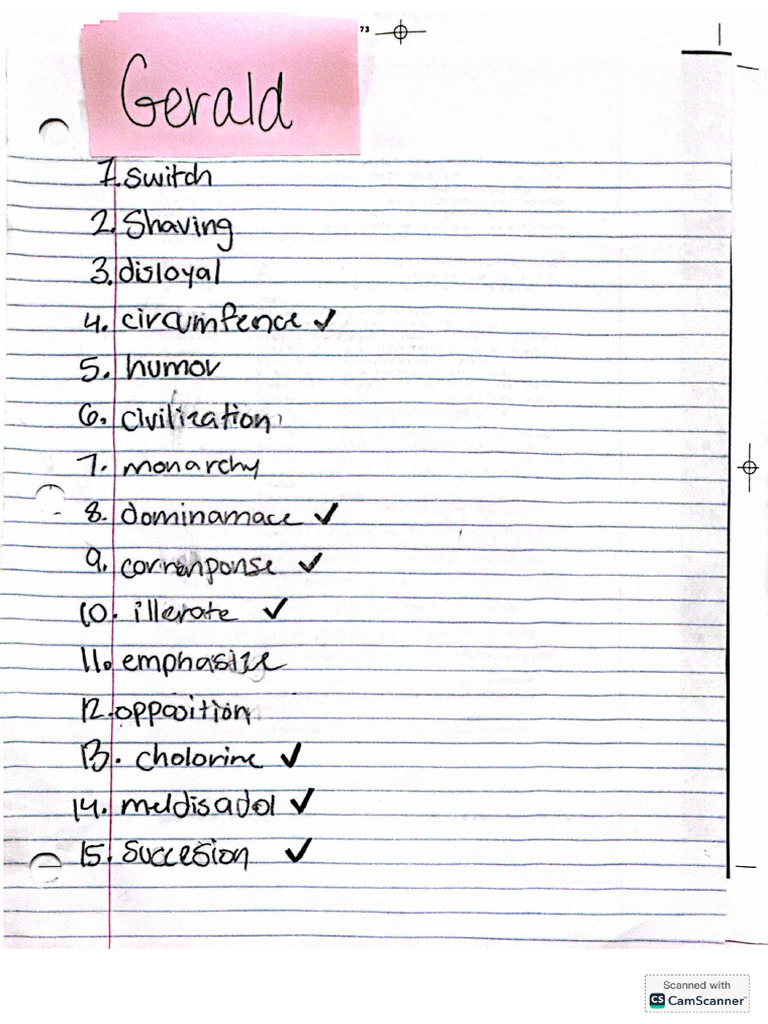 73
Gerald
1. switch
2. Shaving
3. disloyal
4. circumfence ✓
5. humor
6. civilization
7. monarchy
8. dominamace ✓
9. correnponse ✓
10. illerate ✓
11. emphasize
12. opposition
13. cholorine ✓
14. meldisadol ✓
15. Succesion ✓
Scanned with
CS CamScanner